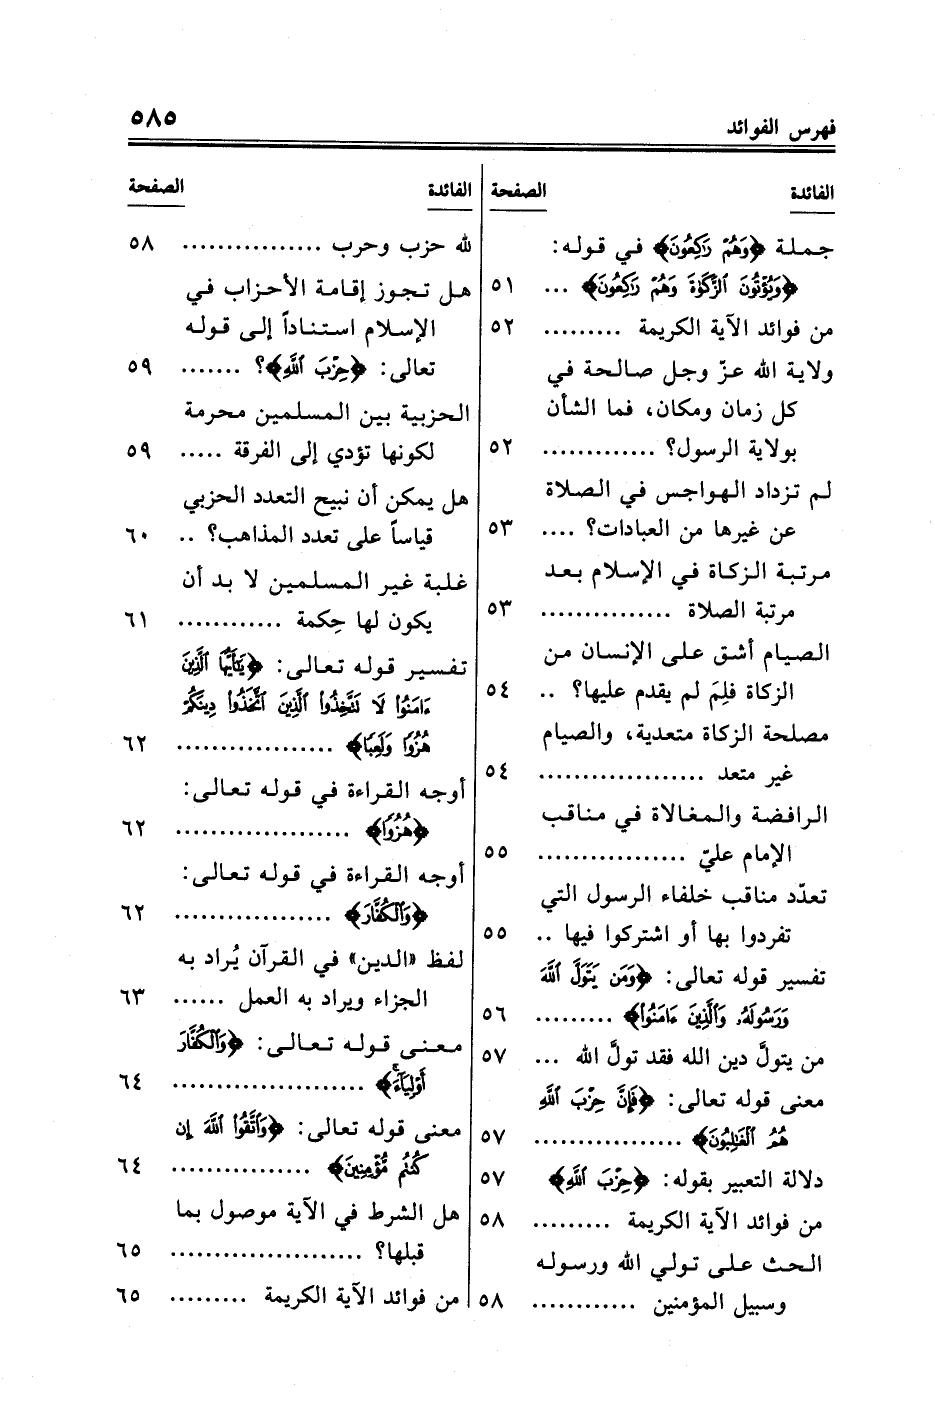 فهرس الفوائد ٥٨٥
الفائدة الصفحة
جملة ﴿وَهُمْ رَاكِعُونَ﴾ في قوله:
﴿وَيُؤْتُونَ الزَّكَوٰةَ وَهُمْ رَاكِعُونَ﴾ ... ٥١
من فوائد الآية الكريمة ......... ٥٢
ولاية الله عزّ وجل صالحة في
كل زمان ومكان، فما الشأن
بولاية الرسول؟ ............. ٥٢
لم تزداد الهواجس في الصلاة
عن غيرها من العبادات؟ .... ٥٣
مرتبة الزكاة في الإسلام بعد
مرتبة الصلاة ............... ٥٣
الصيام أشق على الإنسان من
الزكاة فلِمَ لم يقدم عليها؟ .. ٥٤
مصلحة الزكاة متعدية، والصيام
غير متعد ................... ٥٤
الرافضة والمغالاة في مناقب
الإمام عليّ ................. ٥٥
تعدّد مناقب خلفاء الرسول التي
تفردوا بها أو اشتركوا فيها .. ٥٥
تفسير قوله تعالى: ﴿وَمَن يَتَوَلَّ ٱللَّهَ
وَرَسُولَهُۥ وَٱلَّذِينَ ءَامَنُوا۟﴾ ......... ٥٦
من يتولَّ دين الله فقد تولَّ الله ... ٥٧
معنى قوله تعالى: ﴿فَإِنَّ حِزْبَ ٱللَّهِ
هُمُ ٱلْغَـٰلِبُونَ﴾ ................. ٥٧
دلالة التعبير بقوله: ﴿حِزْبَ ٱللَّهِ﴾ ٥٧
من فوائد الآية الكريمة ......... ٥٨
الحث على تولي الله ورسوله
وسبيل المؤمنين ............ ٥٨
الفائدة الصفحة
لله حزب وحرب ................ ٥٨
هل تجوز إقامة الأحزاب في
الإسلام استناداً إلى قوله
تعالى: ﴿حِزْبَ ٱللَّهِ﴾؟ ....... ٥٩
الحزبية بين المسلمين محرمة
لكونها تؤدي إلى الفرقة ..... ٥٩
هل يمكن أن نبيح التعدد الحزبي
قياساً على تعدد المذاهب؟ .. ٦٠
غلبة غير المسلمين لا بد أن
يكون لها حِكمة ............ ٦١
تفسير قوله تعالى: ﴿يَـٰٓأَيُّهَا ٱلَّذِينَ
ءَامَنُوا۟ لَا تَتَّخِذُوا۟ ٱلَّذِينَ ٱتَّخَذُوا۟ دِينَكُمْ
هُزُوًا وَلَعِبًا﴾ .................. ٦٢
أوجه القراءة في قوله تعالى:
﴿هُزُوًا﴾ .................... ٦٢
أوجه القراءة في قوله تعالى:
﴿وَٱلْكُفَّارَ﴾ .................. ٦٢
لفظ «الدين» في القرآن يُراد به
الجزاء ويراد به العمل ...... ٦٣
معنى قوله تعالى: ﴿وَٱلْكُفَّارَ
أَوْلِيَآءَ ۚ﴾ ...................... ٦٤
معنى قوله تعالى: ﴿وَٱتَّقُوا۟ ٱللَّهَ إِن
كُنتُم مُّؤْمِنِينَ﴾ ................ ٦٤
هل الشرط في الآية موصول بما
قبلها؟ ...................... ٦٥
من فوائد الآية الكريمة ......... ٦٥